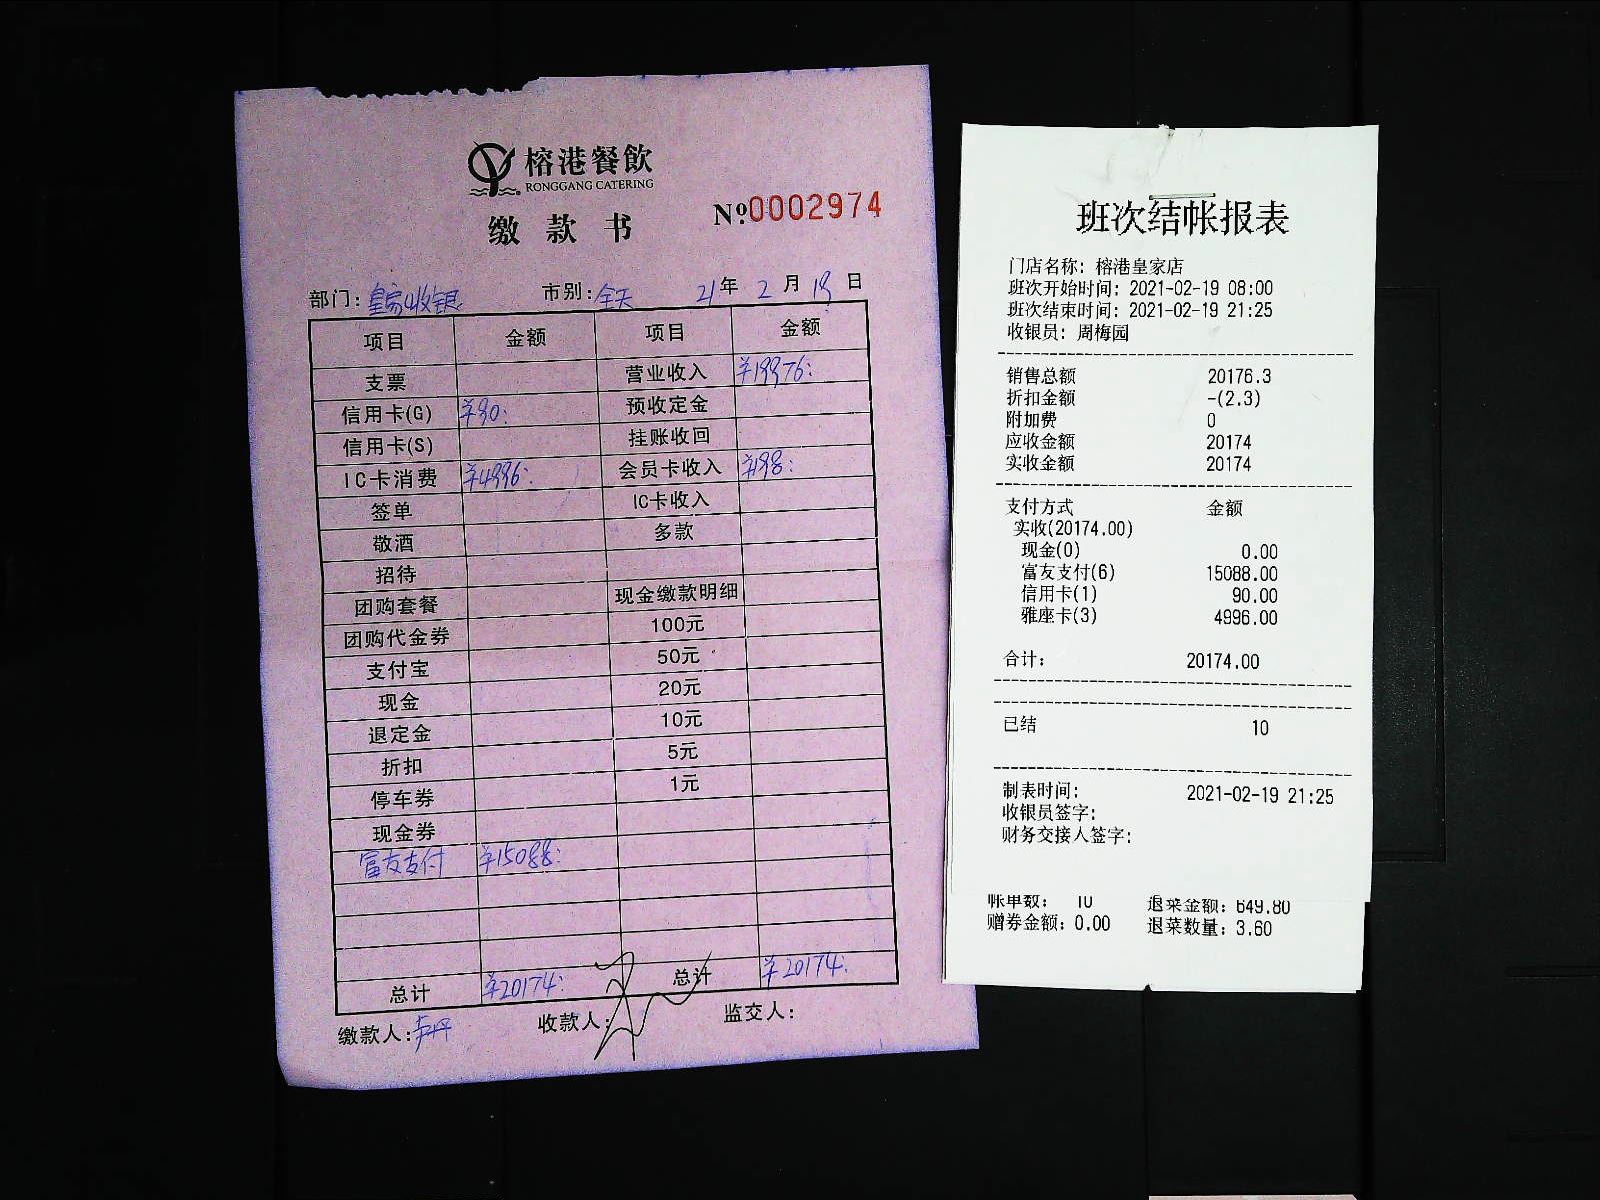 榕港餐飲
RONGGANG CATERING
缴款书
№0002974
部门:皇家收银 市别:全天 21年 2月 19日
项目 金额 项目 金额
支票 营业收入 ¥19976:
信用卡(G) ¥90: 预收定金
信用卡(S) 挂账收回
IC卡消费 ¥4996: 会员卡收入 ¥198:
签单 IC卡收入
敬酒 多款
招待
团购套餐 现金缴款明细
团购代金券 100元
支付宝 50元
现金 20元
退定金 10元
折扣 5元
停车券 1元
现金券
富友支付 ¥15088:
总计 ¥20174: 总计 ¥20174:
缴款人: 收款人: 监交人:
班次结帐报表
门店名称: 榕港皇家店
班次开始时间: 2021-02-19 08:00
班次结束时间: 2021-02-19 21:25
收银员: 周梅园
销售总额 20176.3
折扣金额 -(2.3)
附加费 0
应收金额 20174
实收金额 20174
支付方式 金额
实收(20174.00)
现金(0) 0.00
富友支付(6) 15088.00
信用卡(1) 90.00
雅座卡(3) 4996.00
合计: 20174.00
已结 10
制表时间: 2021-02-19 21:25
收银员签字:
财务交接人签字:
帐单数: 10 退菜金额: 649.80
赠券金额: 0.00 退菜数量: 3.60